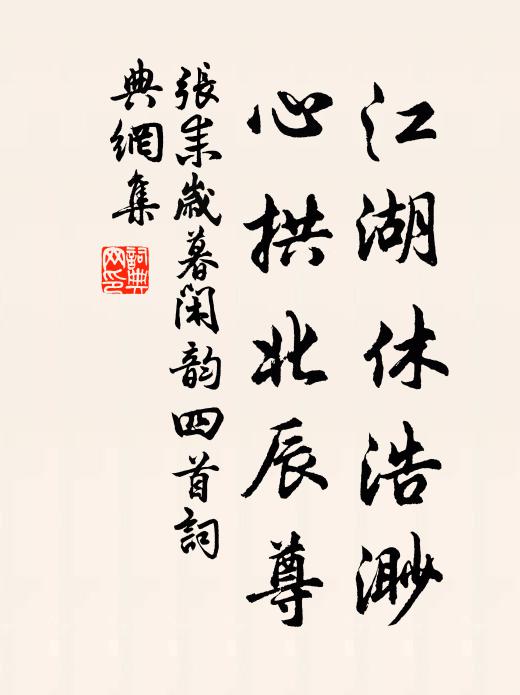 江湖休浩渺
心拱北辰尊
張耒歲暮閑韵四首詞
典網集
詞典網印